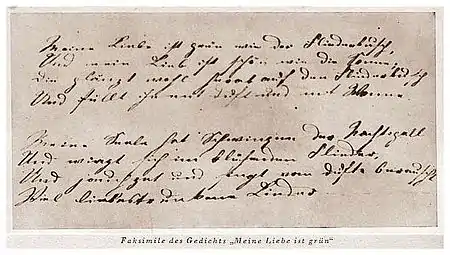 Meine Liebe ist grün wie der Fliederbusch,
Und mein Lieb ist schön wie die Sonne,
Die glänzt wohl herab auf den Fliederbusch
Und füllt ihn mit Duft und mit Wonne.
Meine Seele hat Schwingen der Nachtigall
Und wiegt sich im blühenden Flieder,
Und jauchzet und singt vom Dufte berauscht
Viel liebestrunkene Lieder
Faksimile des Gedichts „Meine Liebe ist grün“